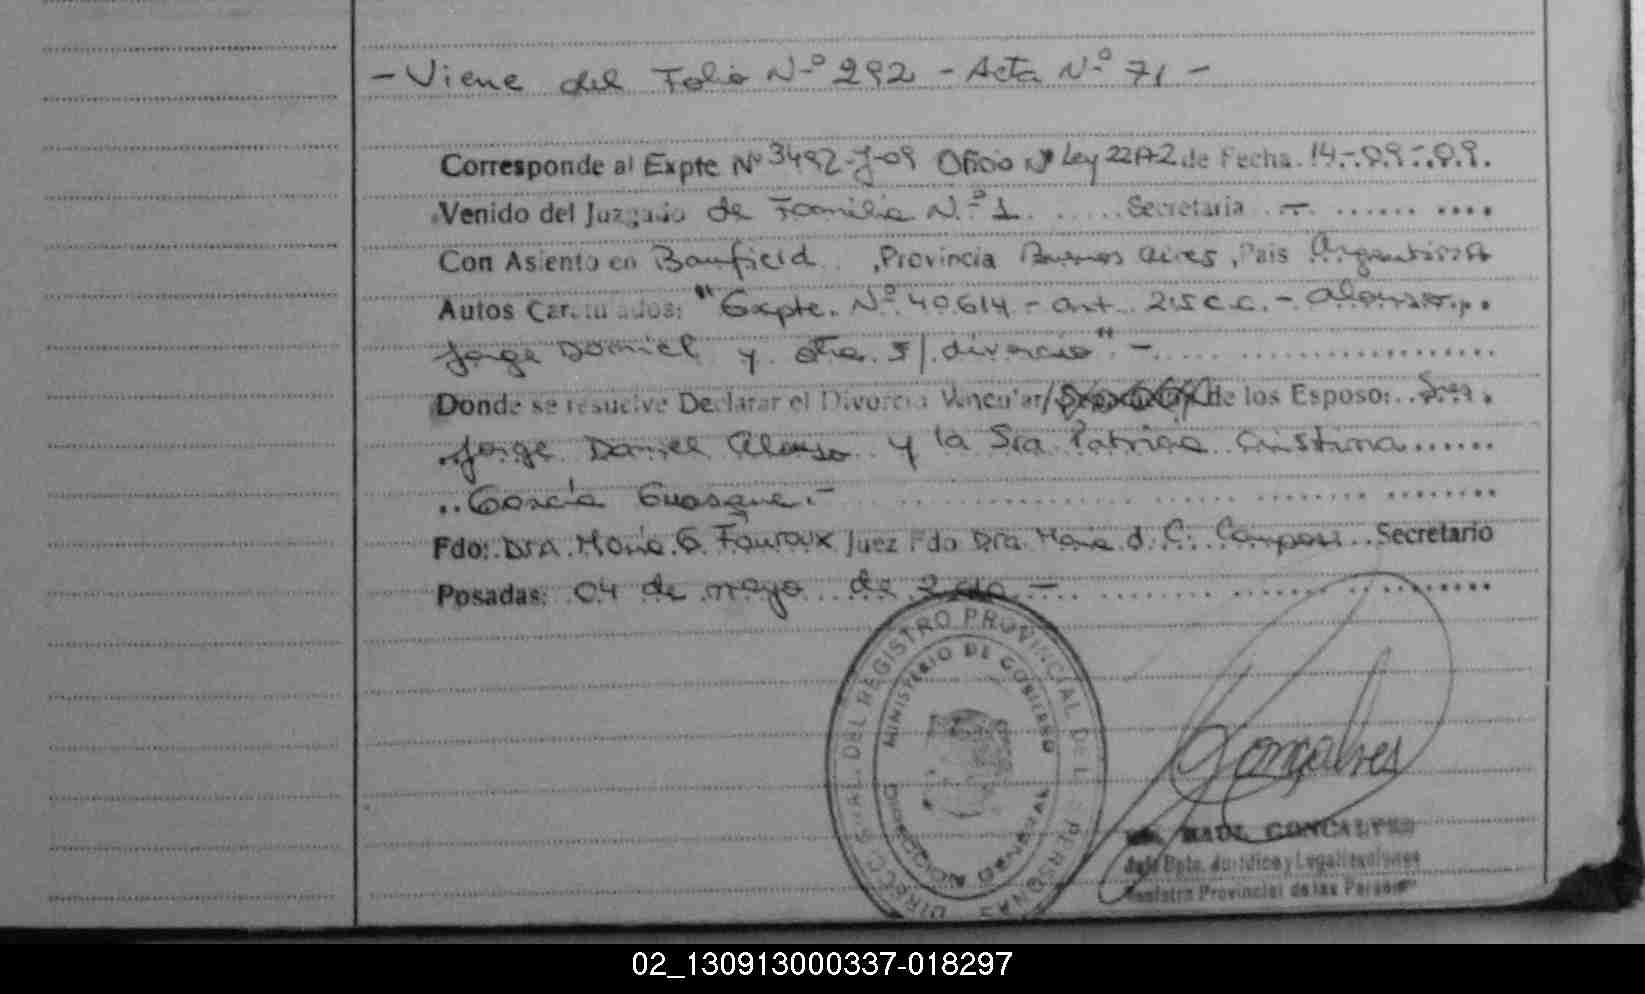 - Viene del Folio Nº 292 - Acta Nº 71 -
Corresponde al Expte Nº 3492-J-09 Oficio Nº Ley 22172 de Fecha 14-.09-.09.
Venido del Juzgado de Familia N.º 1. Secretaria -
Con Asiento en Banfield, Provincia Buenos Aires, Pais Argentina
Autos Caratulados: "Expte. Nº 40.614 - art. 215 C.C. - Alonso,
Jorge Daniel y otra s/ divorcio" -
Donde se resuelve Declarar el Divorcio Vincular/ de los Esposo: Sr.
Jorge Daniel Alonso y la Sra Patricia Cristina
Garcia Guasque.-
Fdo: Dra. Maria G. Fauroux Juez Fdo Dra. Maria d. C. Campos Secretario
Posadas: 04 de mayo de 2010 -
DIRECCION GRAL. DEL REGISTRO PROVINCIAL DE L PERSONAS
MINISTERIO DE GOBIERNO
Gonçalves
RAUL GONCALVES
Jefe Dpto. Juridico y Legalizaciones
Registro Provincial de las Personas
02_130913000337-018297